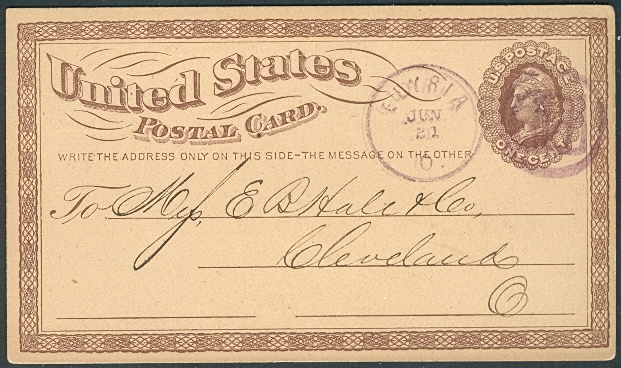 United States
POSTAL CARD.
WRITE THE ADDRESS ONLY ON THIS SIDE–THE MESSAGE ON THE OTHER
U.S. POSTAGE
ONE CENT
ELYRIA
JUN
21
O.
To E B Hale & Co,
Cleveland
O